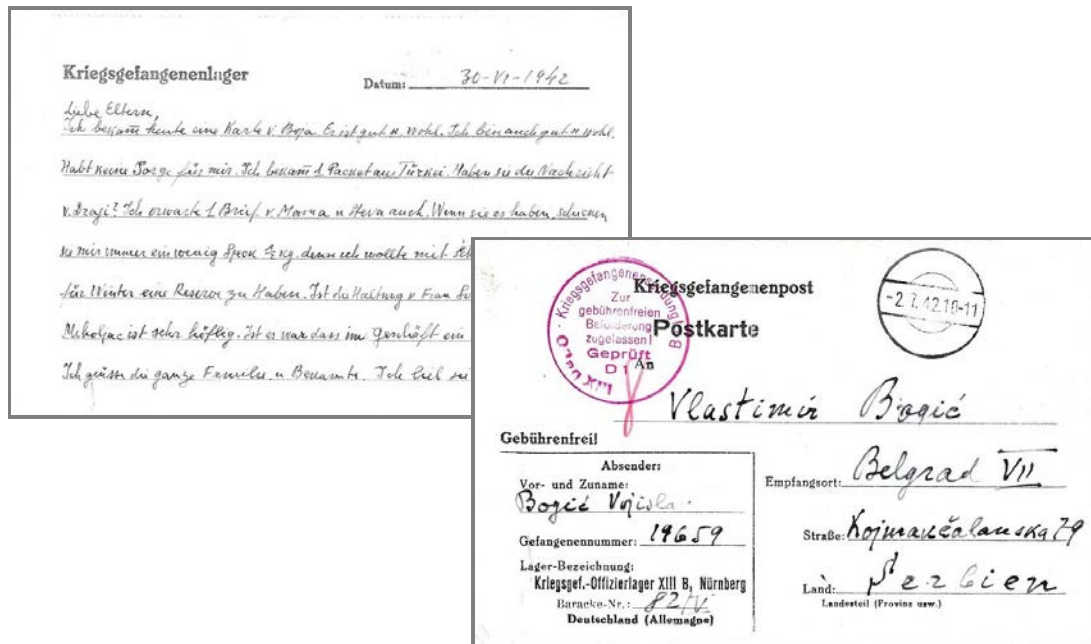 Kriegsgefangenenlager
Datum: 30-VI-1942
Liebe Eltern,
Ich bekam heute eine Karte v. Boja. Er ist gut u. wohl. Ich bin auch gut u wohl.
Habt keine Sorge für mir. Ich bekam 1 Packet aus Türkei. Haben sie die Nachricht
v. Dragi? Ich erwarte 1 Brief v. u auch. Wenn sie es haben, schicken
sie mir immer ein wenig Speck ½ kg. denn ich wollte mit
für Winter eine Reserve zu Haben. Ist die Haltung v Frau
ist sehr höflig. Ist es war dass im Geschäft ein
Ich grüsse die ganze Familie u Bekannte. Ich
Kriegsgefangenenpost
Postkarte
Zur
gebührenfreien
Beförderung
zugelassen!
Geprüft
D 1
Oflag XIII B
-2.7.42.10-11
An
Vlastimir Bogić
Gebührenfrei!
Absender:
Vor- und Zuname:
Bogić
Gefangenennummer: 19659
Lager-Bezeichnung:
Kriegsgef.-Offizierlager XIII B, Nürnberg
Baracke-Nr.: 82/V
Deutschland (Allemagne)
Empfangsort: Belgrad VII
Straße: Kojmančalanska 79
Land: Serbien
Landesteil (Provinz usw.)